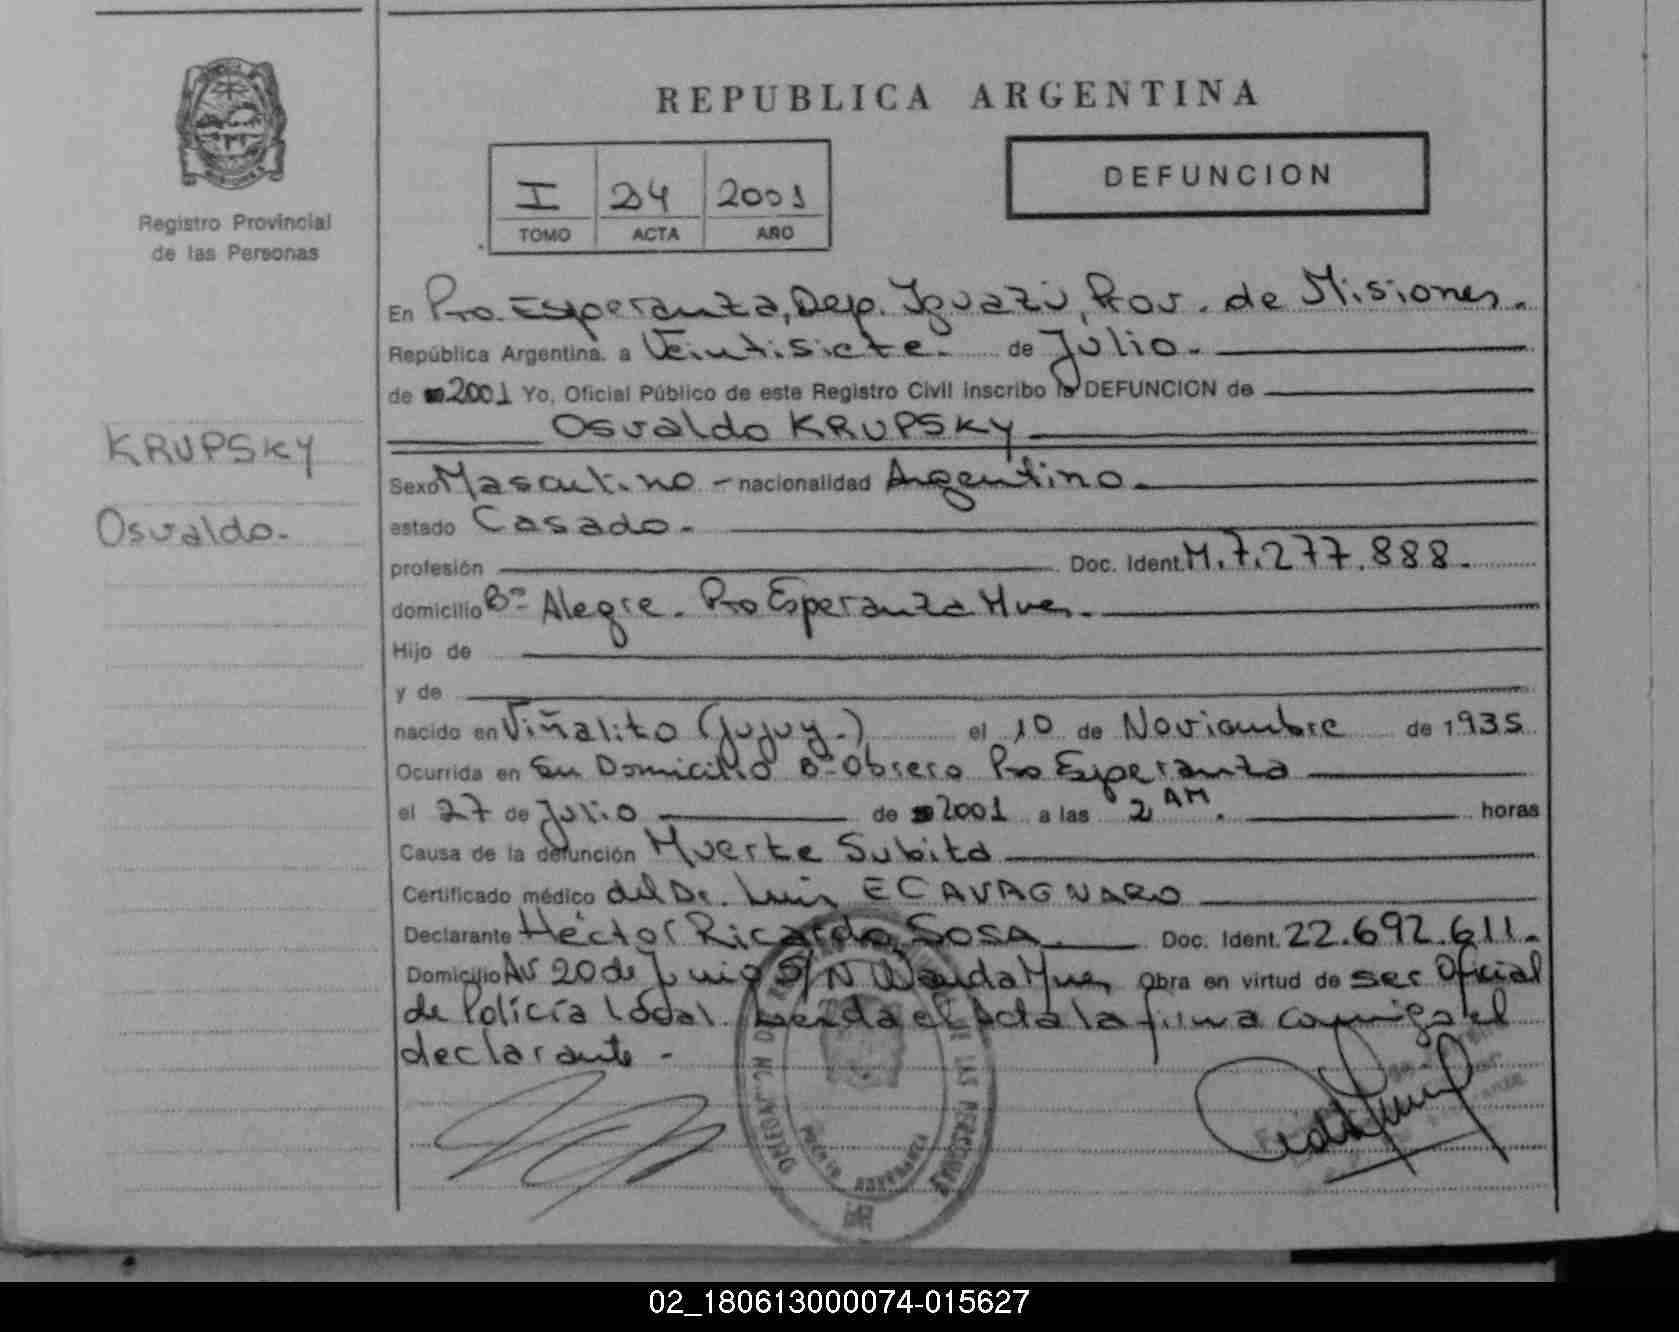 REPUBLICA ARGENTINA
I 24 2001
TOMO ACTA AÑO
DEFUNCION
Registro Provincial
de las Personas
KRUPSKY
Osvaldo.-
En Pto. Esperanza, Dep. Iguazú, Prov. de Misiones.
República Argentina, a Veintisiete. de Julio.-
de 2001 Yo, Oficial Público de este Registro Civil inscribo la DEFUNCION de
Osvaldo KRUPSKY
Sexo Masculino - nacionalidad Argentino.
estado Casado.-
profesión Doc. Ident. M.7.277.888.
domicilio Bº Alegre. Pto Esperanza Mnes.
Hijo de
y de
nacido en Viñalito (Jujuy.) el 10 de Noviembre de 1935
Ocurrida en Su Domicilio Bº Obrero Pto Esperanza
el 27 de Julio de 2001 a las 2 AM. horas
Causa de la defunción Muerte Subita
Certificado médico del Dr. Luis E CAVAGNARO
Declarante Héctor Ricardo SOSA Doc. Ident. 22.692.611.
Domicilio Av 20 de Junio S/N Wanda Mnes Obra en virtud de ser Oficial
de Policía Local. Leida el Acta la firma conmigo el
declarante.-
DE LAS PERSONAS
PUERTO ESPERANZA
02_180613000074-015627